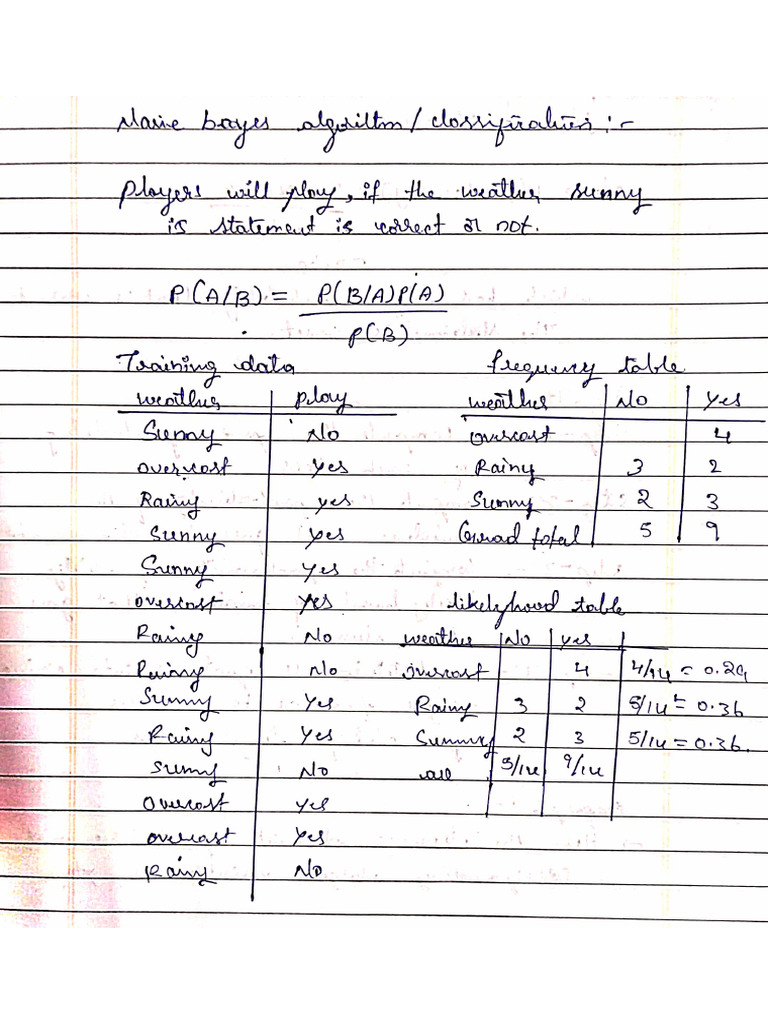 Naive bayes algorithm/classification :-
Players will play, if the weather sunny
is statement is correct or not.
P(A/B) = P(B/A)P(A)
P(B)
Training data
weather Play
Sunny No
overcast Yes
Rainy yes
Sunny yes
Sunny yes
overcast yes
Rainy No
Rainy No
Sunny Yes
Rainy Yes
Sunny No
Overcast yes
overcast Yes
Rainy No
frequency table
weather No Yes
overcast 4
Rainy 3 2
Sunny 2 3
Grand total 5 9
likelyhood table
weather No yes
overcast 4 4/14 = 0.29
Rainy 3 2 5/14 = 0.36
Sunny 2 3 5/14 = 0.36.
all 5/14 9/14